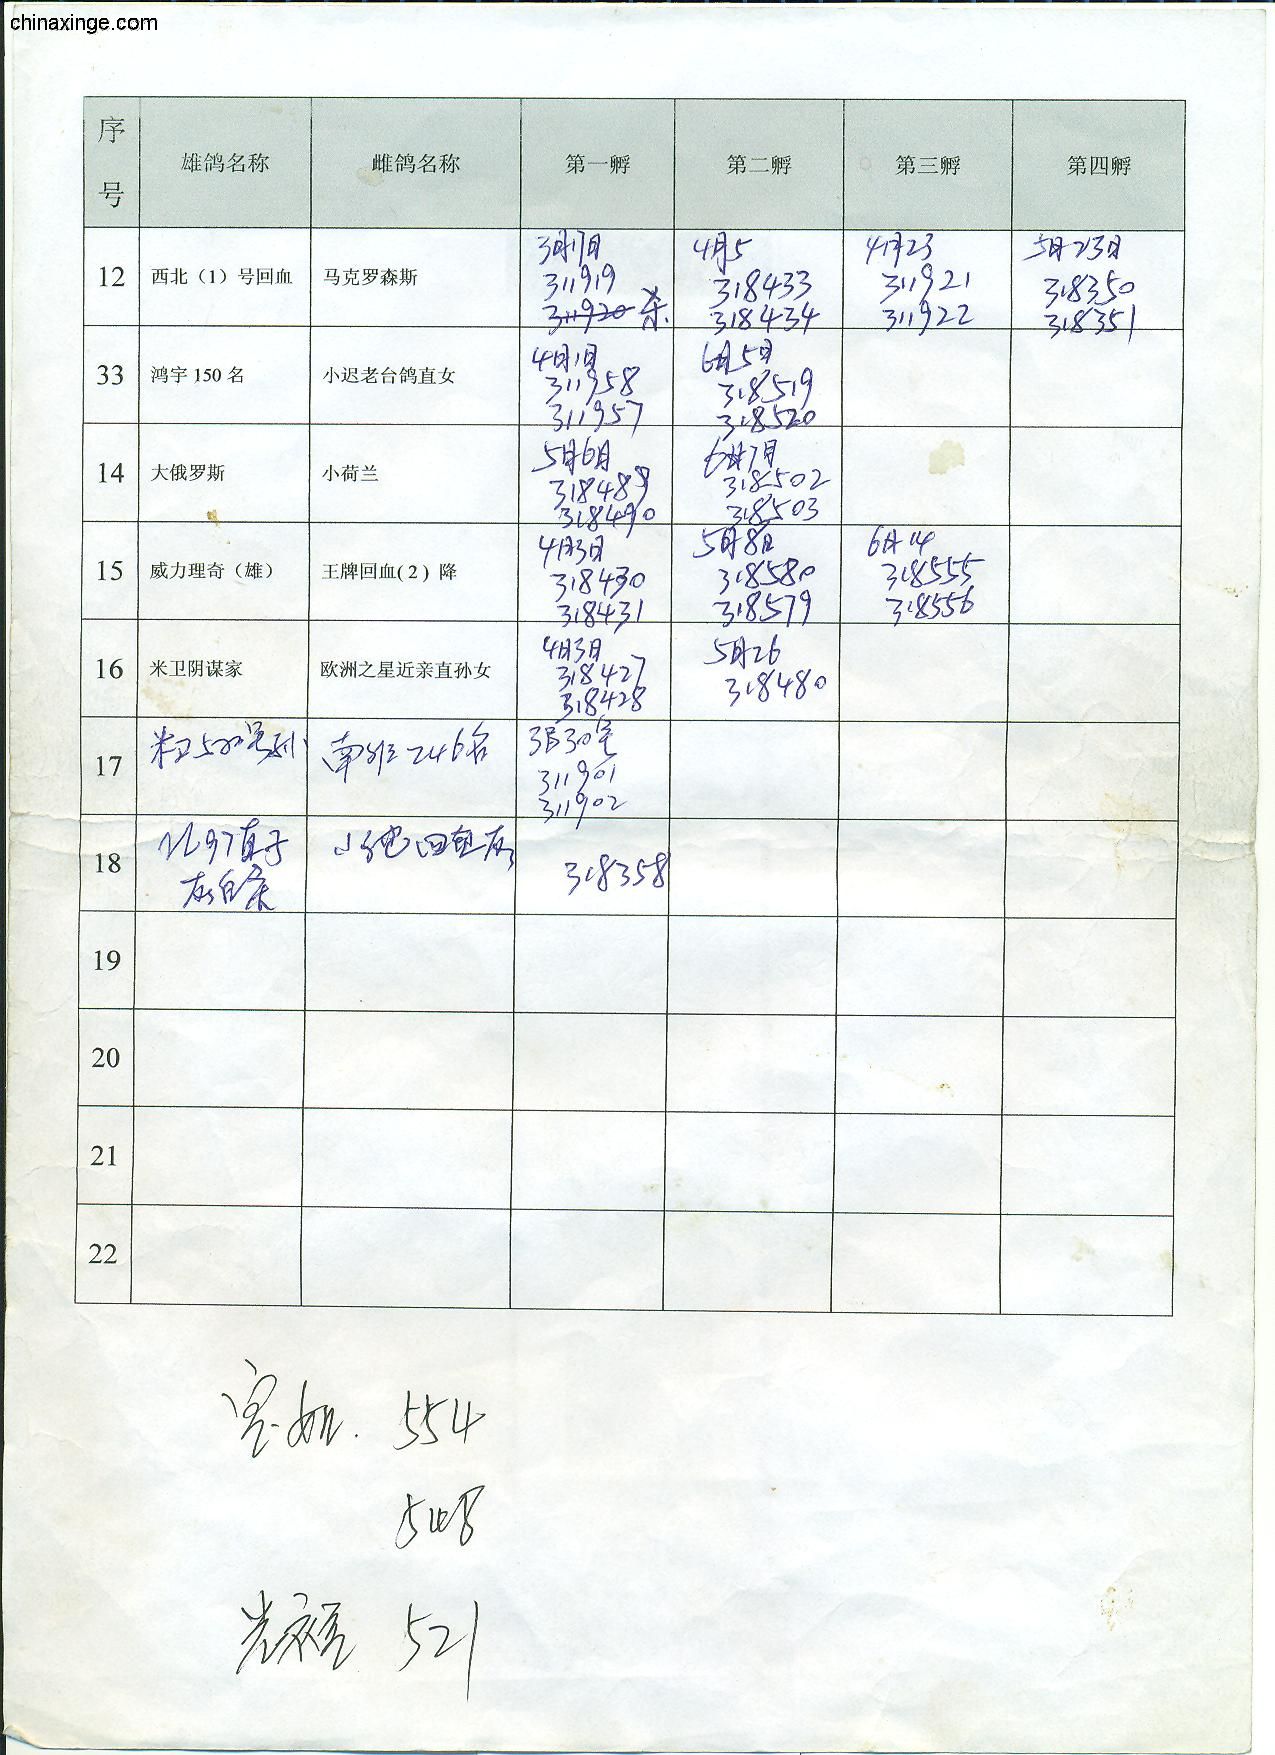 chinaxinge.com
序号 雄鸽名称 雌鸽名称 第一孵 第二孵 第三孵 第四孵
12 西北（1）号回血 马克罗森斯
3月17日 4月5 4月23 5月23日
311919 318433 311921 318350
311920 杀 318434 311922 318351
33 鸿宇150名 小迟老台鸽直女
4月1日 6月5日
311958 318519
311957 318520
14 大俄罗斯 小荷兰
5月6日 6月7日
318489 318502
318490 318503
15 威力理奇（雄） 王牌回血(2）降
4月3日 5月8日 6月14
318430 318580 318555
318431 318579 318556
16 米卫阴谋家 欧洲之星近亲直孙女
4月3日 5月26
318427 318480
318428
17 米卫500号 246名
3月30号
311901
311902
18 97直子 回血灰
灰白条 318358
19
20
21
22
554
548
521